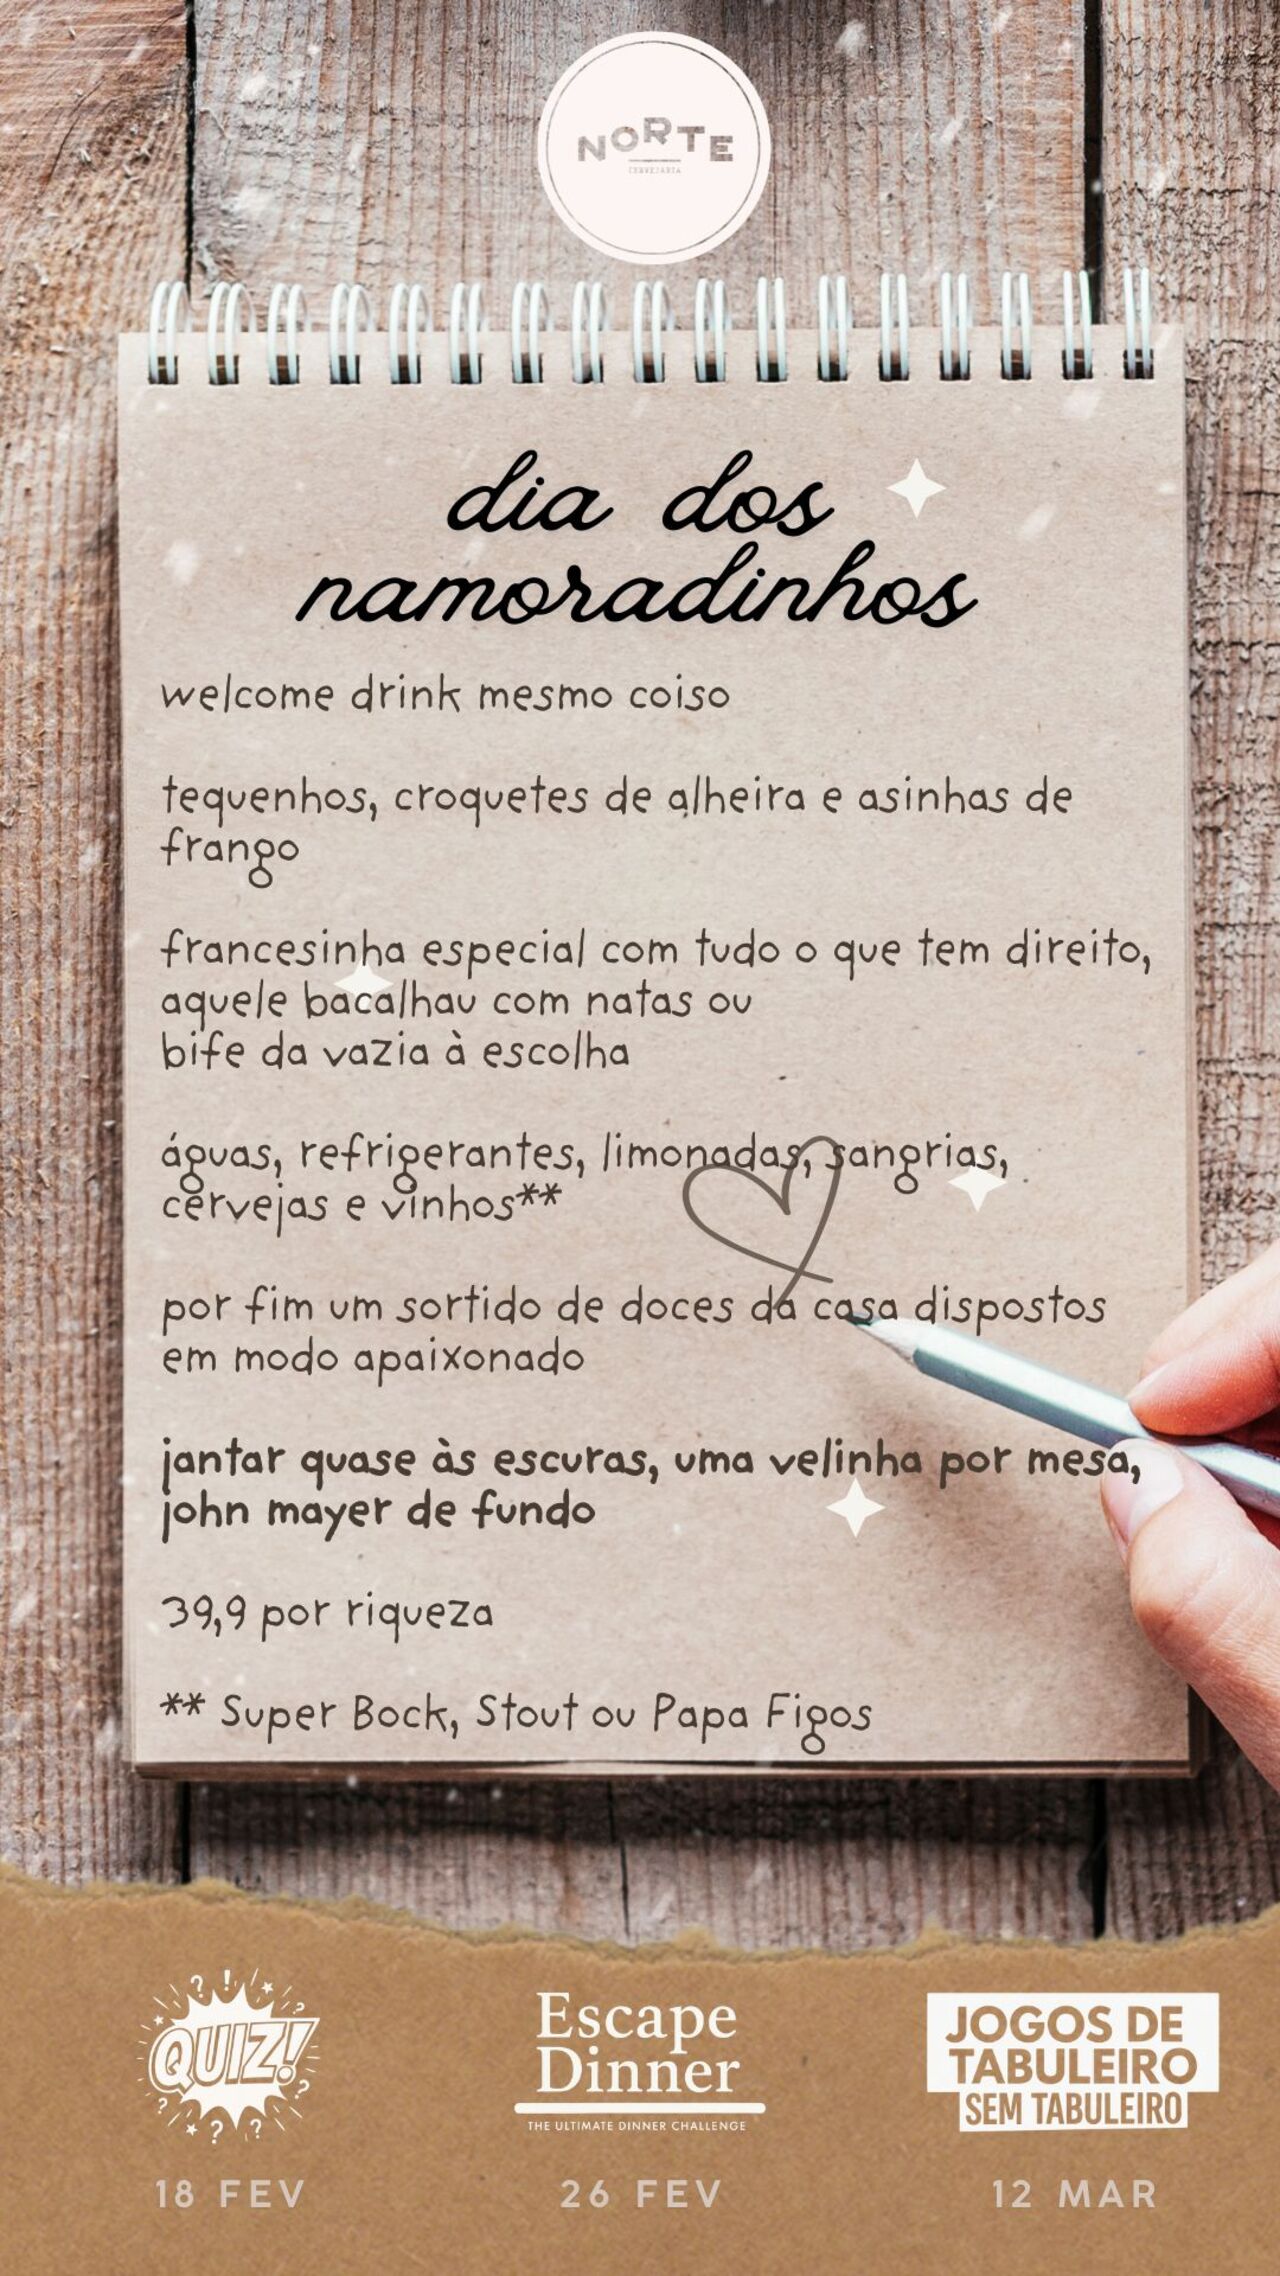 NORTE
CERVEJARIA
dia dos
namoradinhos
welcome drink mesmo coiso
tequenhos, croquetes de alheira e asinhas de
frango
francesinha especial com tudo o que tem direito,
aquele bacalhau com natas ou
bife da vazia à escolha
águas, refrigerantes, limonadas, sangrias,
cervejas e vinhos**
por fim um sortido de doces da casa dispostos
em modo apaixonado
jantar quase às escuras, uma velinha por mesa,
john mayer de fundo
39,9 por riqueza
** Super Bock, Stout ou Papa Figos
QUIZ!
18 FEV
Escape
Dinner
THE ULTIMATE DINNER CHALLENGE
26 FEV
JOGOS DE
TABULEIRO
SEM TABULEIRO
12 MAR